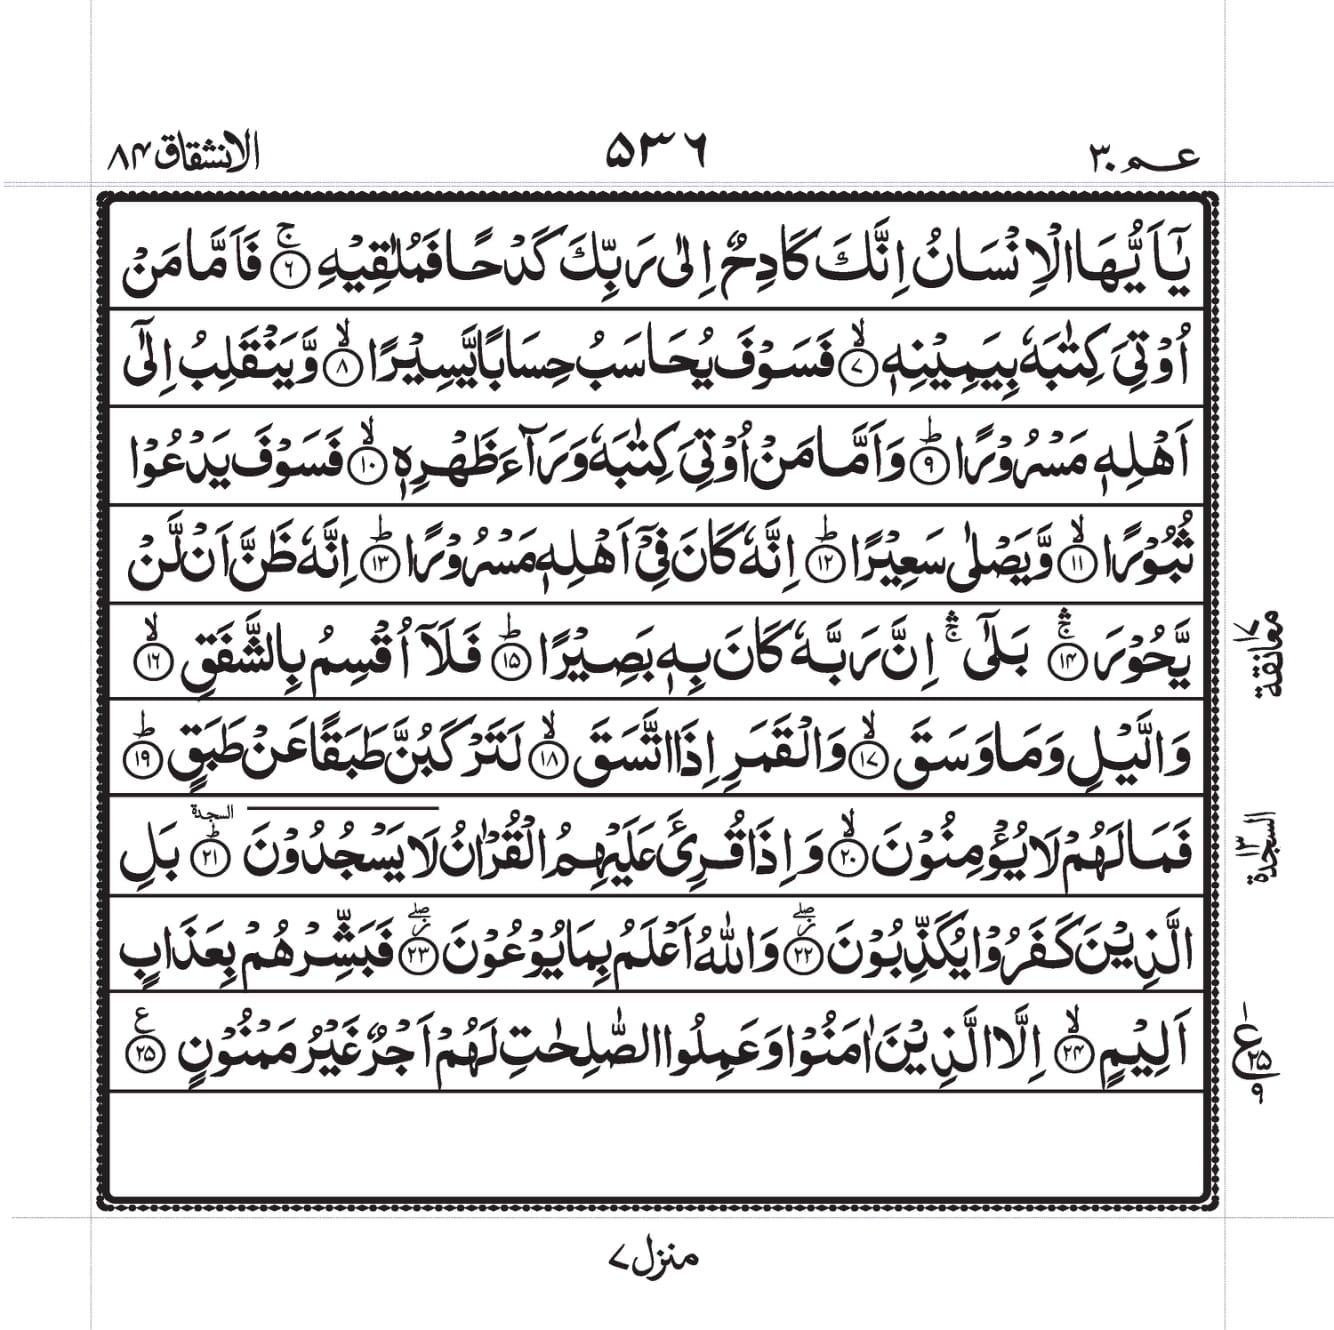 عم ۳۰ ۵۳۶ الانشقاق ۸۴
يٰۤاَيُّهَا الۡاِنۡسَانُ اِنَّكَ كَادِحٌ اِلٰى رَبِّكَ كَدۡحًا فَمُلٰقِيۡهِ ۚ‏﴿۶﴾ فَاَمَّا مَنۡ
اُوۡتِىَ كِتٰبَهٗ بِيَمِيۡنِهٖ ۙ‏﴿۷﴾ فَسَوۡفَ يُحَاسَبُ حِسَابًا يَّسِيۡرًا ۙ‏﴿۸﴾ وَّيَنۡقَلِبُ اِلٰٓى
اَهۡلِهٖ مَسۡرُوۡرًا ؕ‏﴿۹﴾ وَاَمَّا مَنۡ اُوۡتِىَ كِتٰبَهٗ وَرَآءَ ظَهۡرِهٖ ۙ‏﴿۱۰﴾ فَسَوۡفَ يَدۡعُوۡا
ثُبُوۡرًا ۙ‏﴿۱۱﴾ وَّيَصۡلٰى سَعِيۡرًا ؕ‏﴿۱۲﴾ اِنَّهٗ كَانَ فِىۡۤ اَهۡلِهٖ مَسۡرُوۡرًا ؕ‏﴿۱۳﴾ اِنَّهٗ ظَنَّ اَنۡ لَّنۡ
يَّحُوۡرَ ۛۚ‏﴿۱۴﴾ بَلٰٓى ۛۚ اِنَّ رَبَّهٗ كَانَ بِهٖ بَصِيۡرًا ؕ‏﴿۱۵﴾ فَلَاۤ اُقۡسِمُ بِالشَّفَقِ ۙ‏﴿۱۶﴾
معانقة ۱۷
وَالَّيۡلِ وَمَا وَسَقَ ۙ‏﴿۱۷﴾ وَالۡقَمَرِ اِذَا اتَّسَقَ ۙ‏﴿۱۸﴾ لَتَرۡكَبُنَّ طَبَقًا عَنۡ طَبَقٍ ؕ‏﴿۱۹﴾
فَمَا لَهُمۡ لَا يُؤۡمِنُوۡنَ ۙ‏﴿۲۰﴾ وَاِذَا قُرِئَ عَلَيۡهِمُ الۡقُرۡاٰنُ لَا يَسۡجُدُوۡنَ ؕ‏السجدة ﴿۲۱﴾ بَلِ
السجدة ۱۳
الَّذِيۡنَ كَفَرُوۡا يُكَذِّبُوۡنَ ۖ‏﴿۲۲﴾ وَاللّٰهُ اَعۡلَمُ بِمَا يُوۡعُوۡنَ ۖ‏﴿۲۳﴾ فَبَشِّرۡهُمۡ بِعَذَابٍ
اَلِيۡمٍ ۙ‏﴿۲۴﴾ اِلَّا الَّذِيۡنَ اٰمَنُوۡا وَعَمِلُوا الصّٰلِحٰتِ لَهُمۡ اَجۡرٌ غَيۡرُ مَمۡنُوۡنٍ ع‏﴿۲۵﴾
ع ۱ ۲۵ ۹
منزل ۷